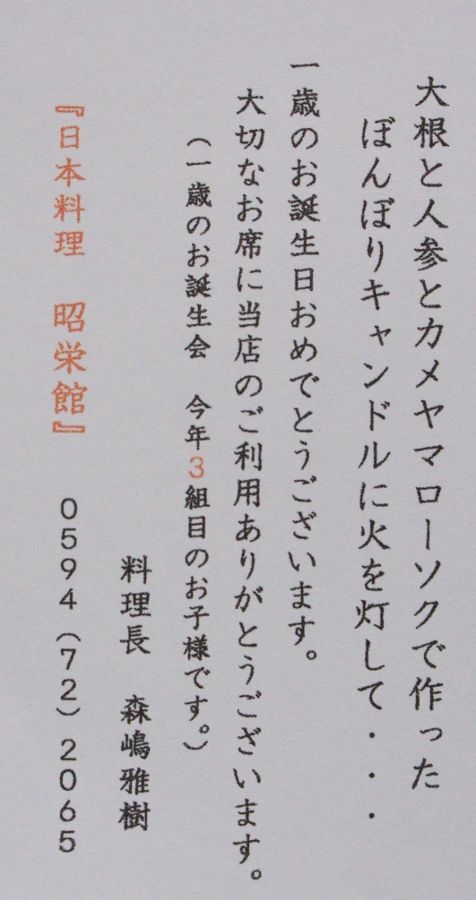 大根と人参とカメヤマローソクで作った
ぼんぼりキャンドルに火を灯して・・・
一歳のお誕生日おめでとうございます。
大切なお席に当店のご利用ありがとうございます。
（一歳のお誕生会　今年３組目のお子様です。）
料理長　森嶋雅樹
『日本料理　昭栄館』　０５９４（７２）２０６５